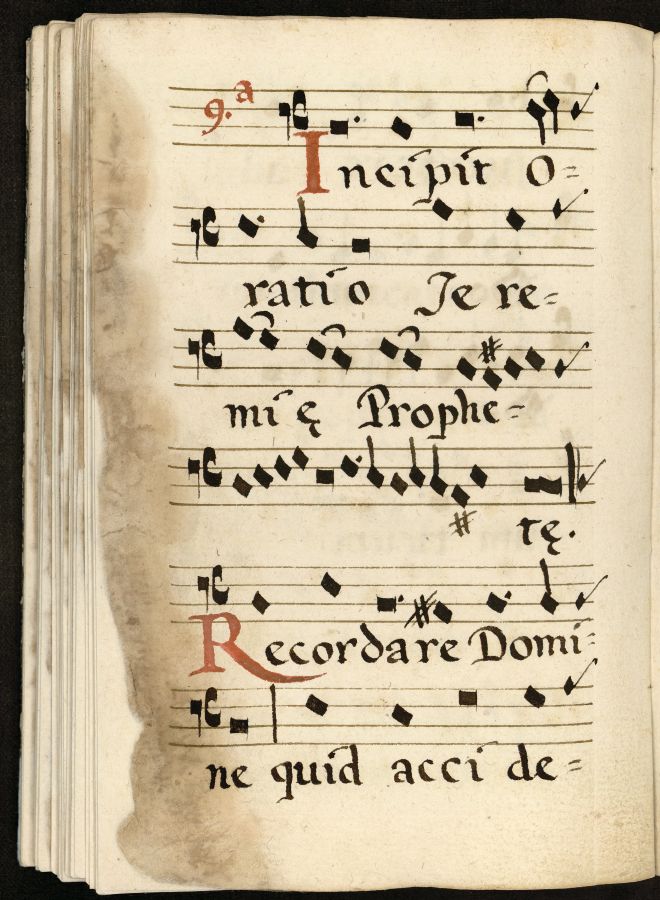 9.a
Incipit O=
ratio Je re=
mi ę Prophe=
tę.
Recordare Domi=
ne quid acci de=